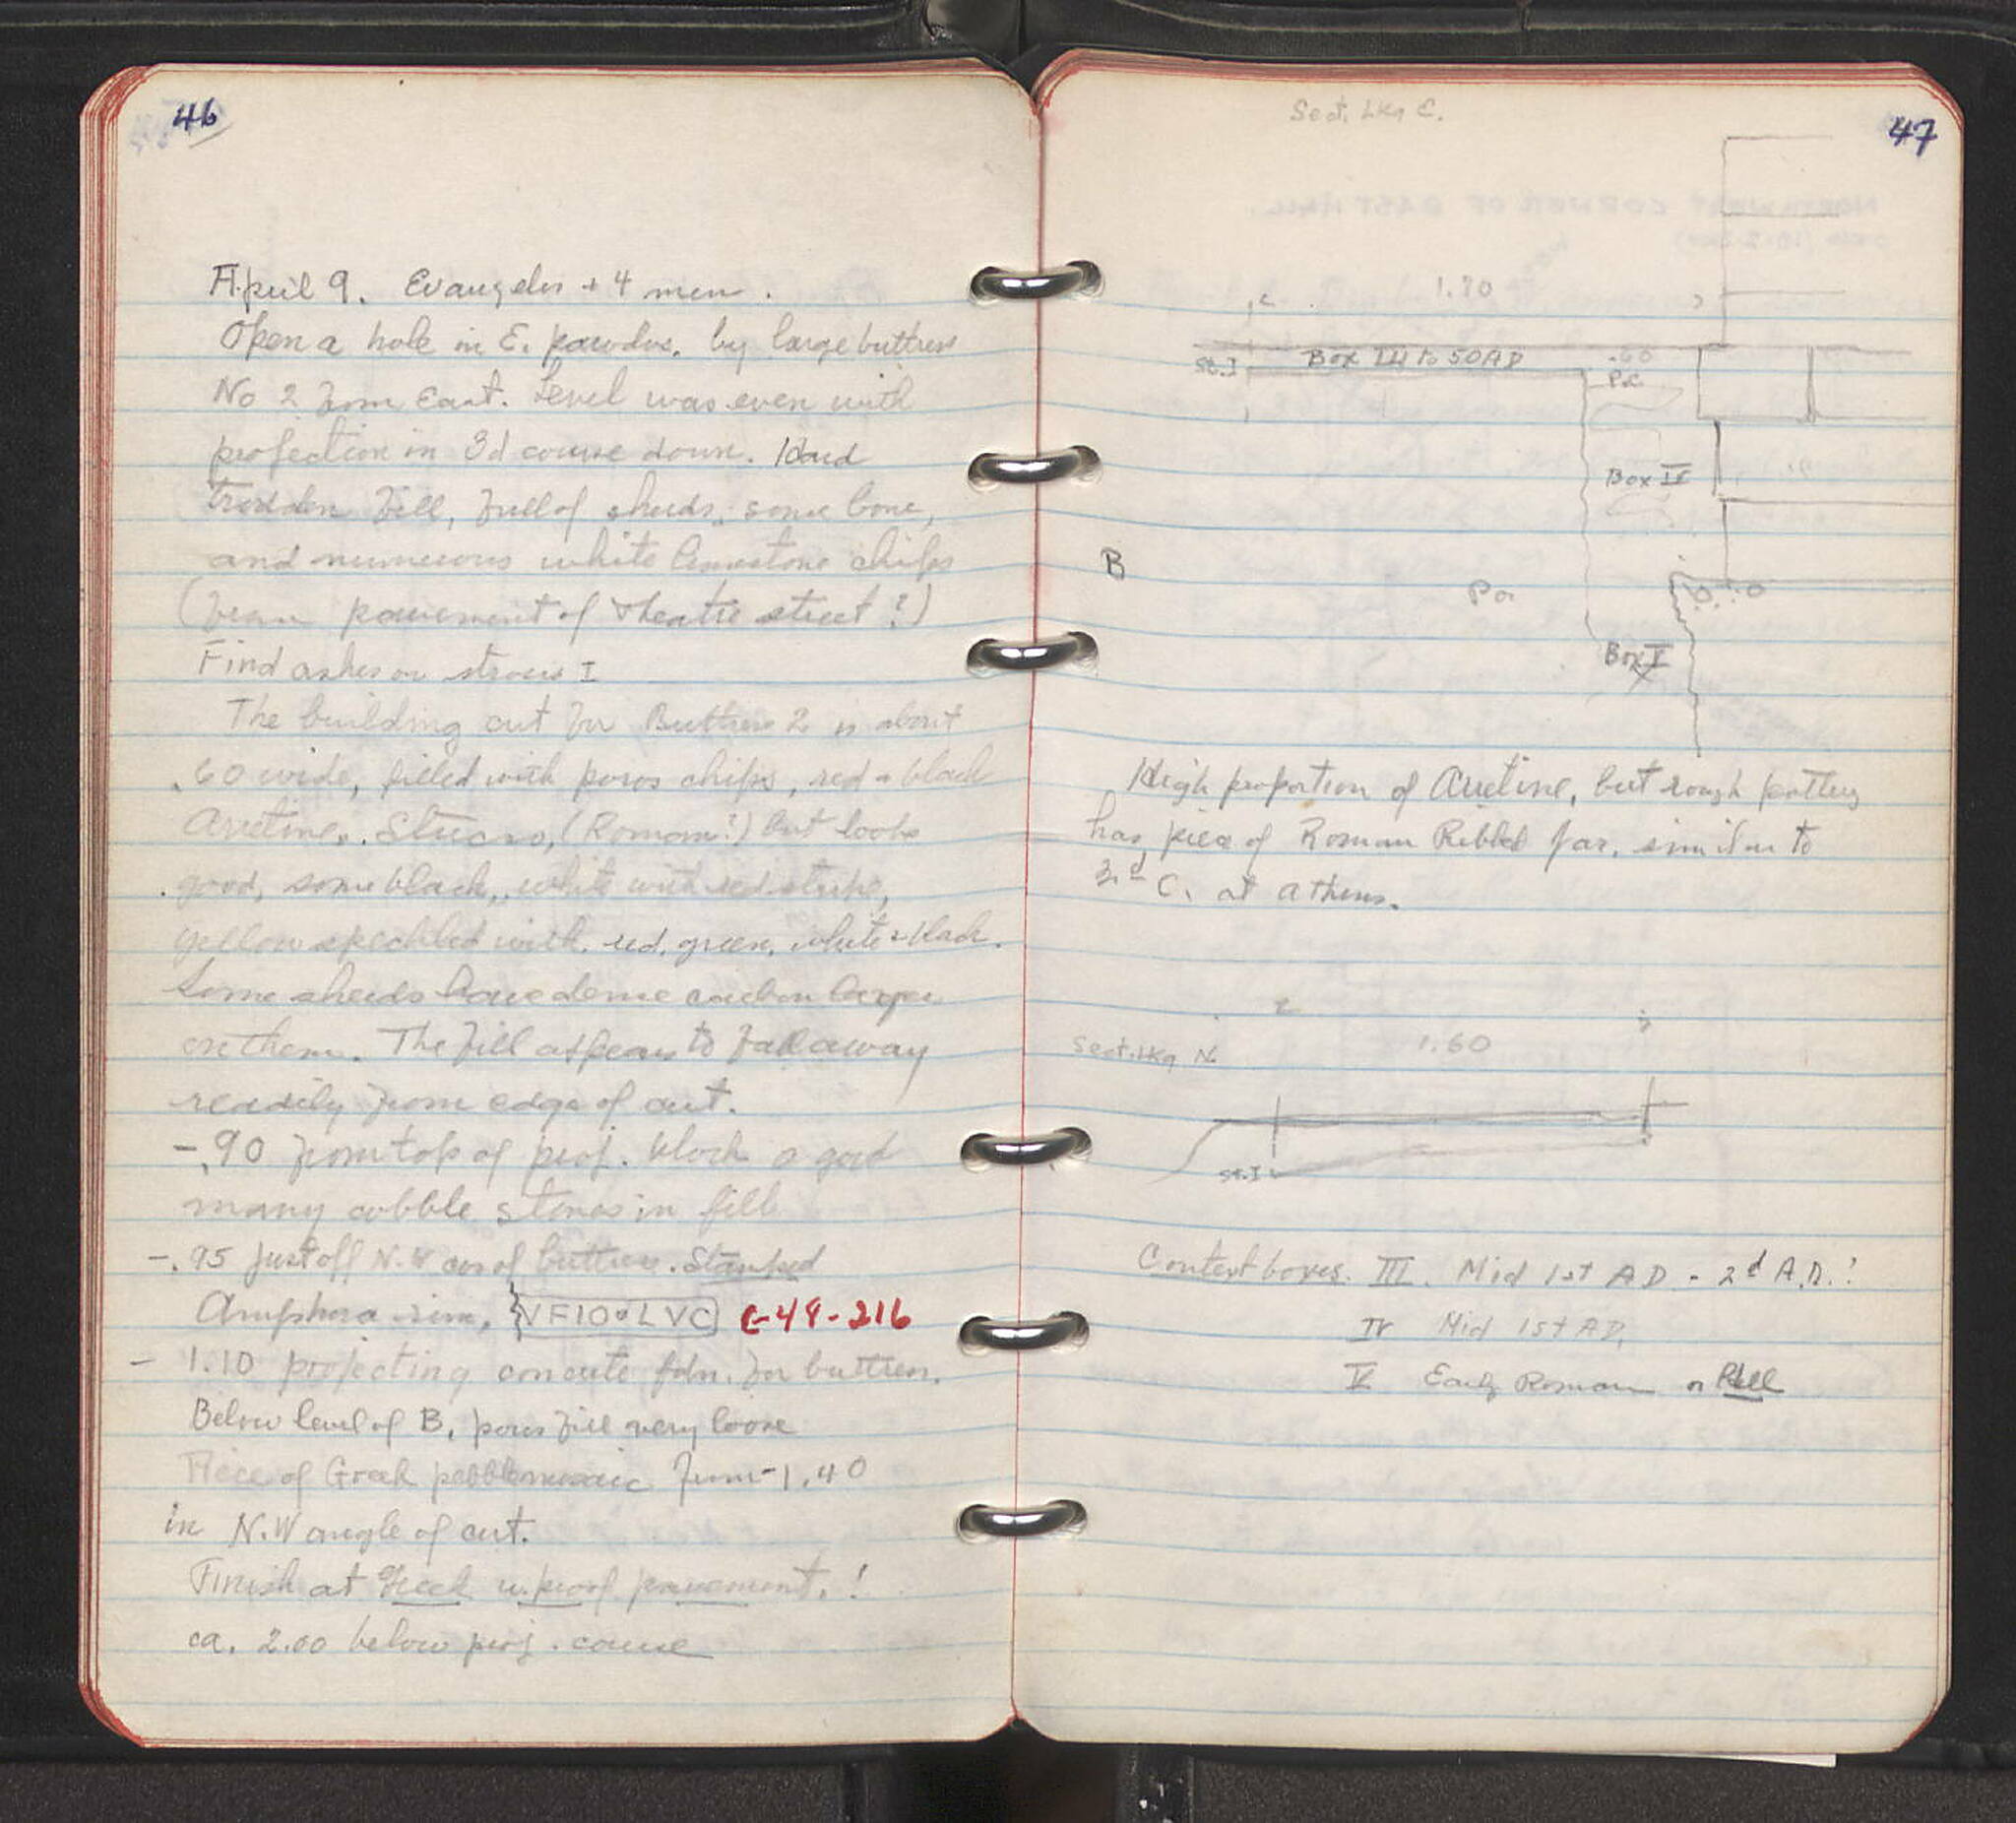 46
April 9. Evangelos + 4 men.
Open a hole in E. parodos, by large buttress
No 2 from East. Level was even with
projection in 3d course down. Hard
trodden fill, full of sherds, some bone,
and numerous white limestone chips
(from pavement of theatre street?)
Find ashes on stroses I
The building cut for Buttress 2 is about
.60 wide, filled with poros chips, red + black
Arretine. Stucco, (Roman?) but looks
good, some black, white with red stripe,
yellow speckled with red, green, white & black.
Some sherds have dense carbon layer
on them. The fill appears to fall away
readily from edge of cut.
-.90 from top of proj. block a good
many cobble stones in fill
-.95 just off N.W cor of buttress. Stamped
Amphora rim, VFIO•LVC C-48-216
- 1.10 projecting concrete fdn. for buttress.
Below level of B, poros fill very loose
Piece of Greek pebble mosaic from -1.40
in N.W angle of cut.
Finish at Greek w.proof pavement.!
ca. 2.00 below proj. course
47
Sect. Lkg E.
1.70
St. I Box III to 50 AD .60
Po.
Box IV
B
Po
Box V
High proportion of Arretine, but rough pottery
has piece of Roman Ribbed jar, similar to
3rd C. at Athens.
Sect. Lkg N.
1.60
St. I
Context boxes. III. Mid 1st AD - 2d A.D.?
IV Mid 1st AD.
V Early Roman